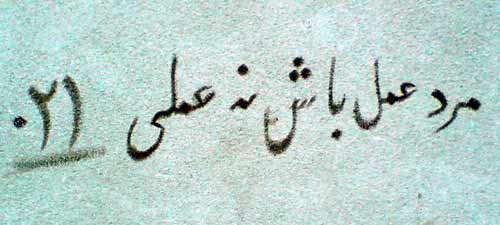 مرد عمل باش نه عملی ۰۲۱